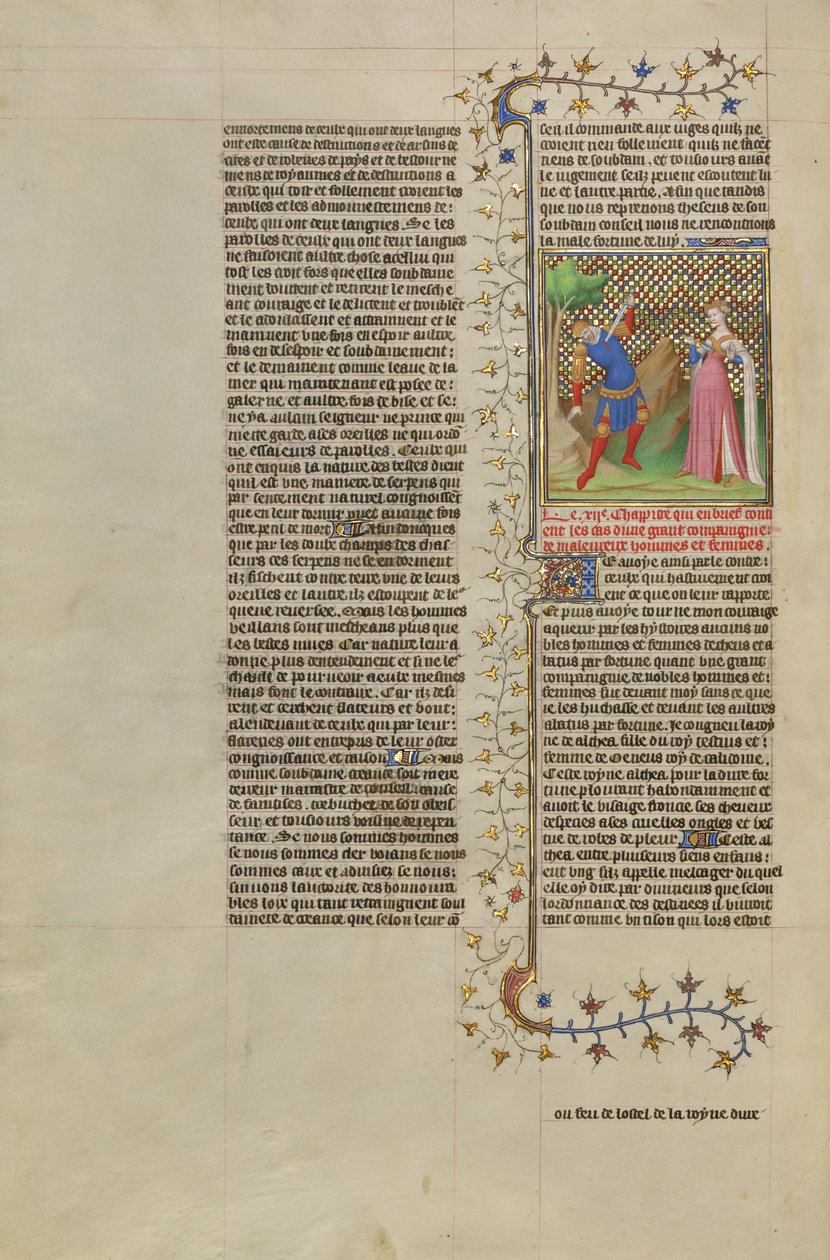 ennortemens de ceulx qui ont deux langues
ont este cause de destructions et de arsins de
cites et de roberies de pays et de bestourne
mens de royaumes et de destructions a
ceulx qui tost et follement croient les
parolles et les admonnestemens de:
ceulx qui ont deux langues. Se les
parolles de ceulx qui ont deux langues
ne faisoient aultre chose a celluy qui
tost les croit fors que elles soubdaine
ment tournent et retirent le mesche
ant courage et le delictent et troublent
et le adoulcissent et attraiuent et le
mainent une fois en espoir aultre
fois en desespoir et soubdainement:
et le demainent comme leaue de la
mer qui maintenant est posee de:
galerne et aultre fois de bise et se:
ne y a aulcun seigneur ne prince qui
mette garde a ses oreilles ne qui ordon
ne essaieurs de parolles. Ceulx qui
ont enquis la nature des bestes dient
quil est une maniere de serpens qui
par sentement naturel congnoissent
que en leur dormir puet aucune fois
estre peril de mort Afin doncques
que par les doulx champs des chas
seurs ces serpens ne se endorment
ilz fischent contre terre une de leurs
oreilles et lautre ilz estoupent de leur
queue reversee. Mais les hommes
veillans sont mescheans plus que
les bestes mues Car nature leur a
donne plus dentendement et si ne leur
chault de pourveoir a eulx mesmes
mais font le contraire. Car ilz desi
rent et cerchent flateurs et bout:
alendevant de ceulx qui par leur:
flateries ont entrepris de leur oster
congnoissance et raison Mais
comme soubdaine creance soit mere
derreur marrastre de conseil cause
de faintises. trebuchet de son obeis
seur et tousiours voisine de repen
tance. Se nous sommes hommes
se nous sommes cler voians se nous
sommes caux et advisiez se nous:
suivons lauctorite des honnoura
bles loix qui tant restraignent soul
dainete de creance que selon leur con
seil il commande aux iuges quilz ne
croient rien follement quilz ne facent
riens de soubdain. et tousiours avant
le iugement seilz peuent escoutent lu
ne et lautre partie. Afin que tandis
que nous reprenons theseus de son
soubdain conseil nous ne rencontrions
la male fortune de luy.
Le .xiie. Chappitre qui en brief conti
ent les cas dune grant compaignie.
de maleureux hommes et femmes.
Je avoye ainsi parle contre:
ceulx qui hastivement croi
ent ce que on leur rapporte
Et puis avoye tourne mon courage
a querir par les hystoires aucuns no
bles hommes et femmes decheus et a
batus par fortune quant une grant
compaignie de nobles hommes et:
femmes fut devant moy sans ce que
ie les huchasse et devant les aultres
abatus par fortune. Je congneu la roy
ne de althea fille du roy testius et:
femme de Oeneus roy de calidoine.
Ceste royne althea pour la dure for
tune plourant habondamment et
avoit le visaige fronce ses cheveux
despecies a ses cruelles ongles et ves
tue de robes de pleur Ceste al
thea entre plusieurs siens enfans:
eut ung filz appelle meleager du quel
elle oy dire par divineurs que selon
lordonnance des destinees il vivroit
tant comme un tison qui lors estoit
ou feu de lostel de la royne dure